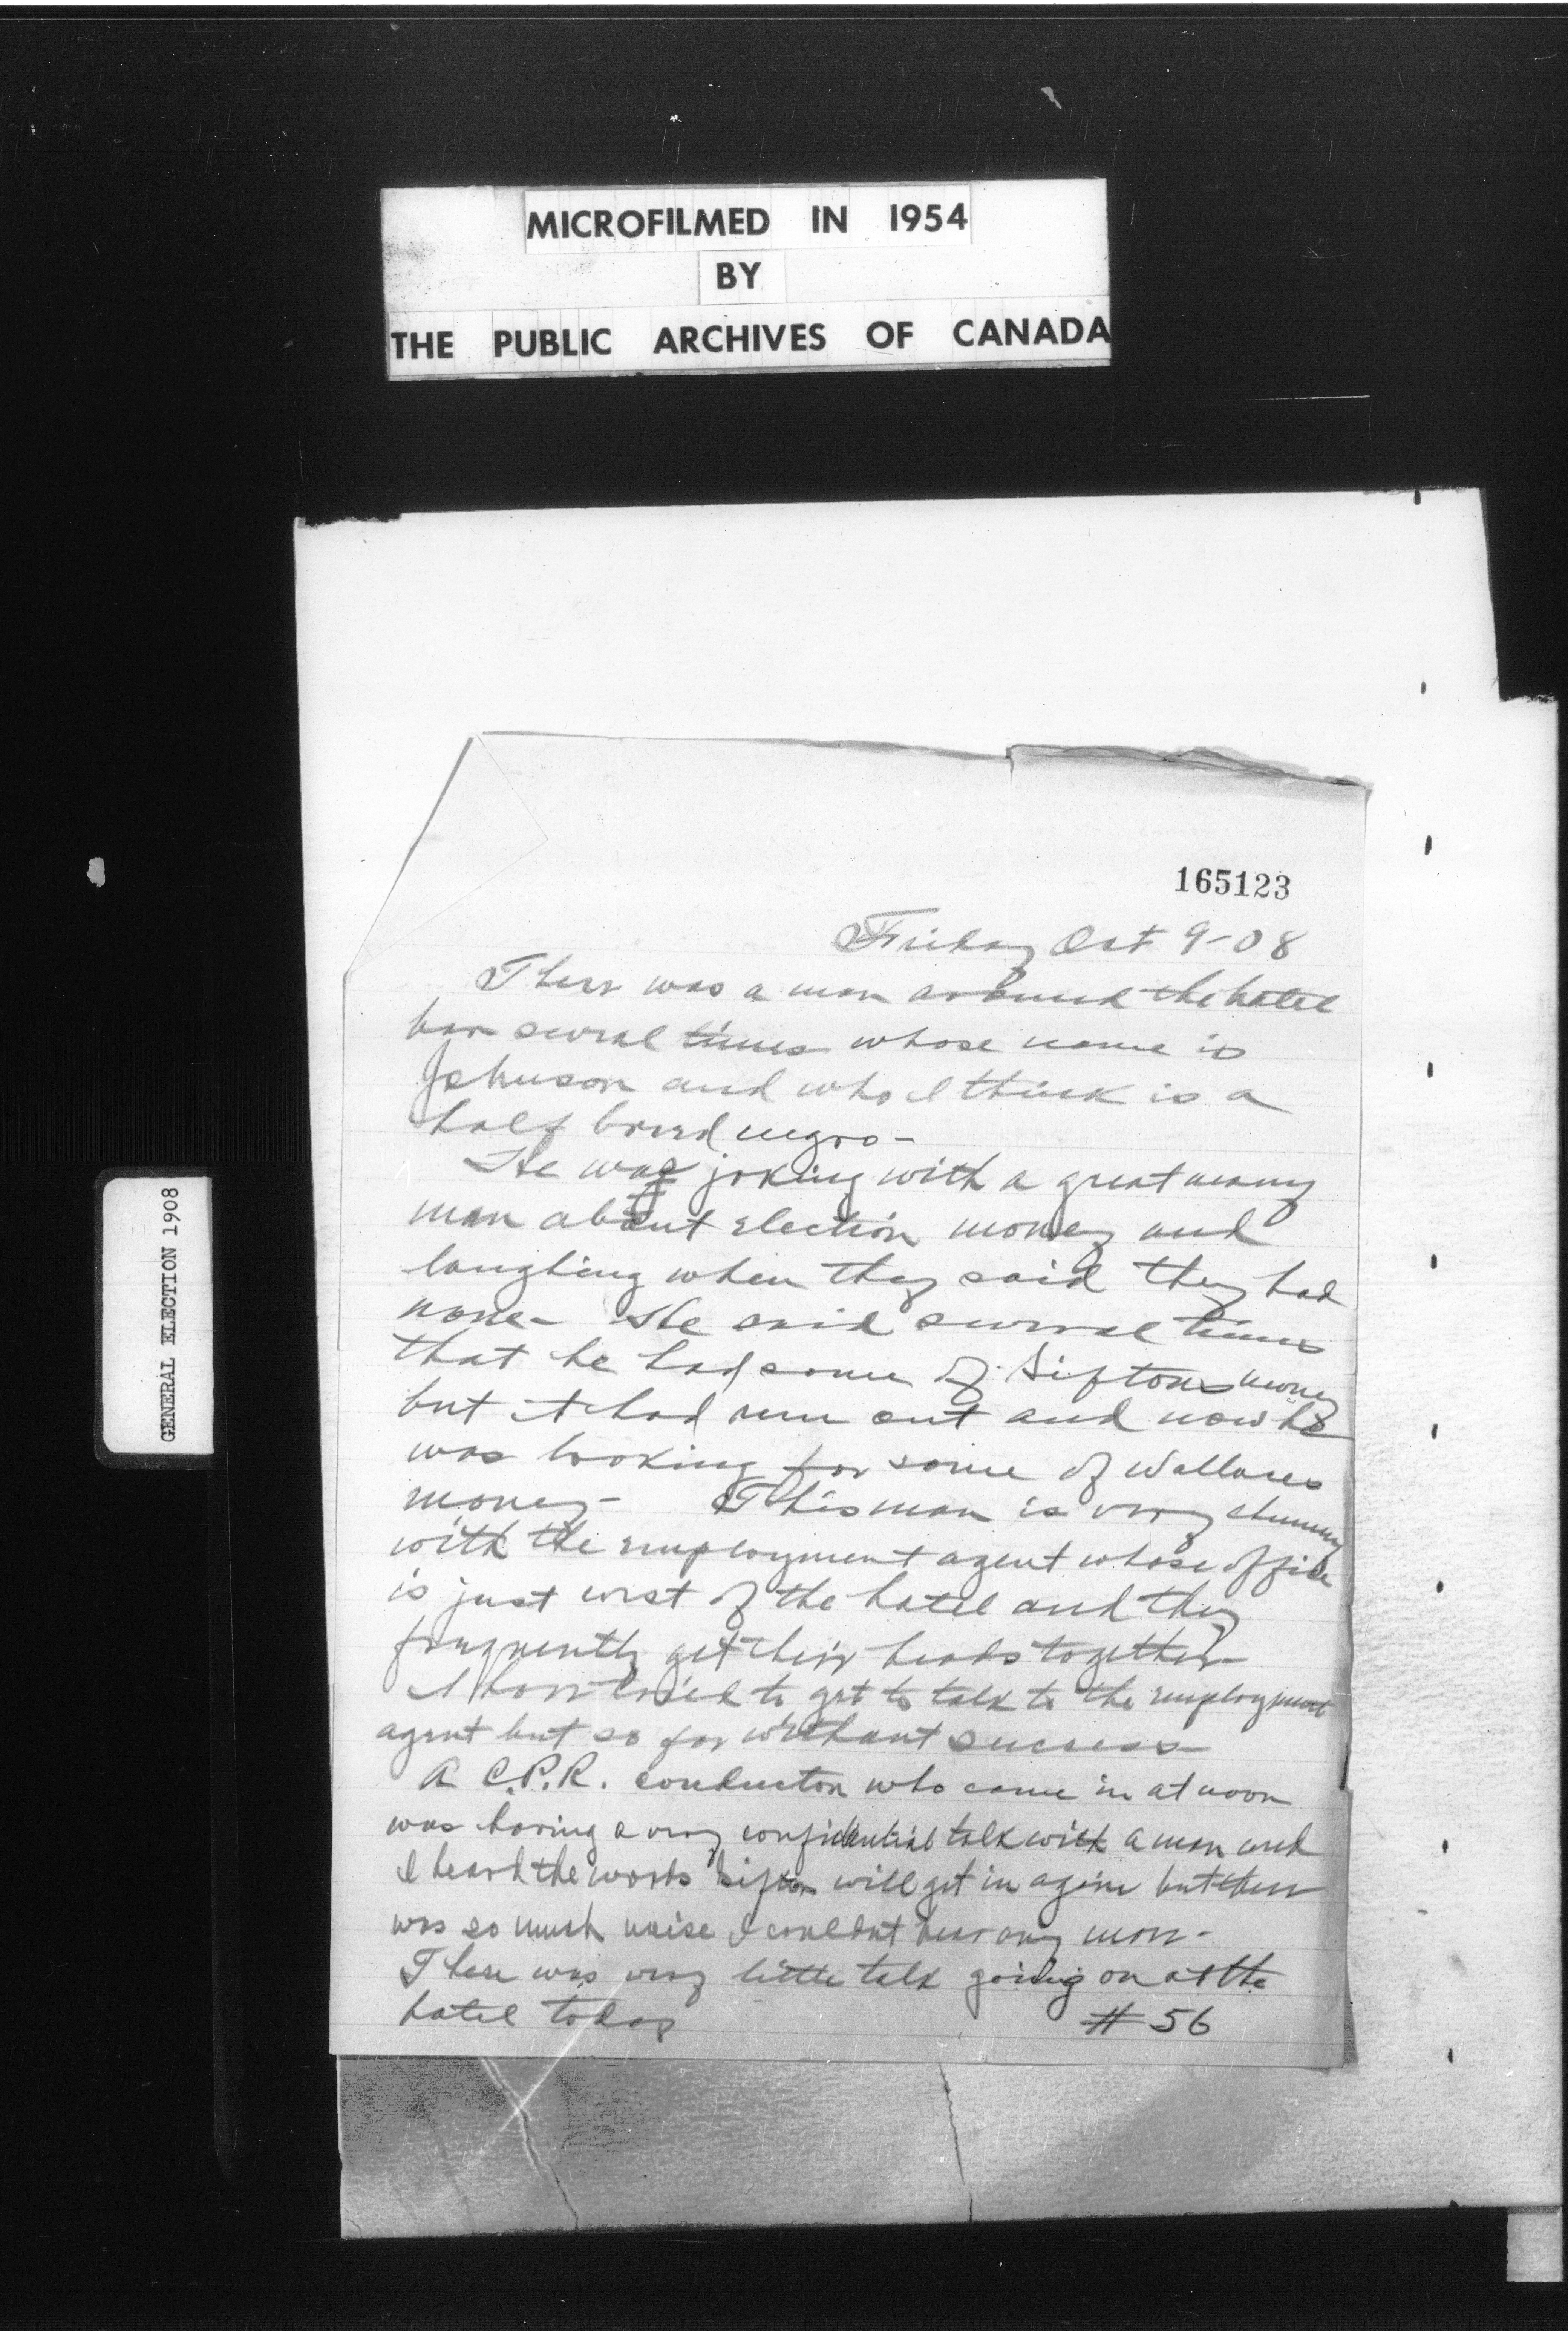 MICROFILMED IN 1954
BY
THE PUBLIC ARCHIVES OF CANADA
GENERAL ELECTION 1908
165123
Friday Oct 9-08
There was a man around the hotel
bar several times whose name is
Johnson and who I think is a
half breed negro-
He was joking with a great many
men about election money and
laughing when they said they had
none- He said several times
that he had some of Siftons money
but it had run out and now he
was looking for some of Wallaces
money- This man is very chummy
with the employment agent whose office
is just west of the hotel and they
frequently get their heads together-
I have tried to get to talk to the employment
agent but so far without success-
A C.P.R. conductor who came in at noon
was having a very confidential talk with a man and
I heard the words Sifton will get in again but there
was so much noise I couldnt hear any more-
There was very little talk going on at the
hotel today
# 56